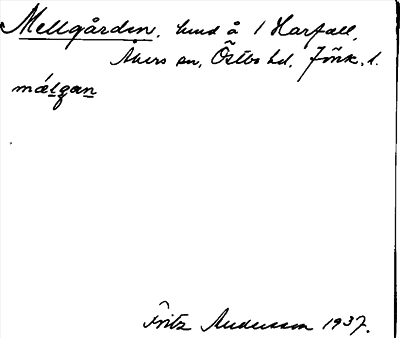 Mellgården, hmd å 1 Harfall,
Åkers sn, Östbo hd, Jönk. l.
málgan
Fritz Andersson 1937.